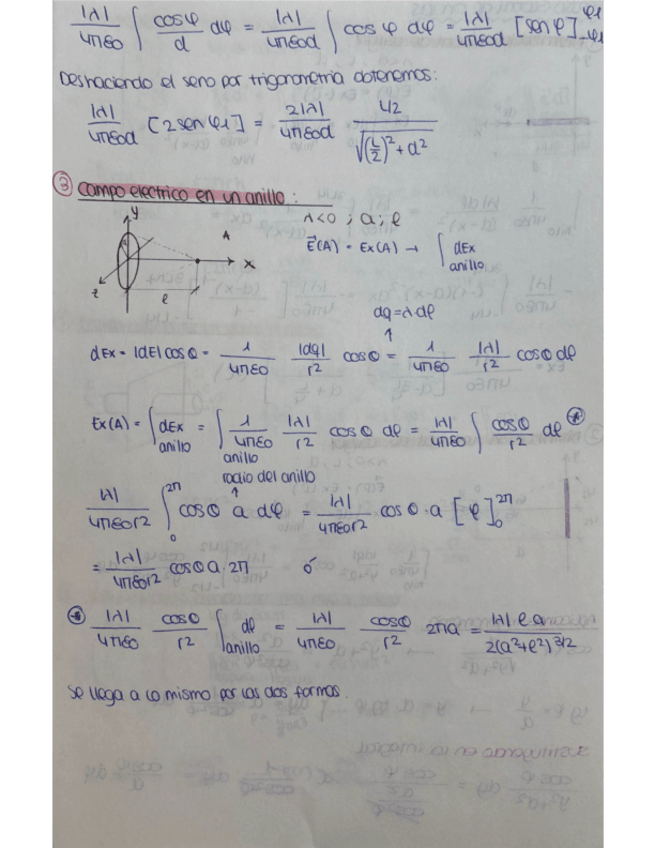 |λ|/4πε0 ∫ cosφ/d dφ = |λ|/4πε0d ∫ cos φ dφ = |λ|/4πε0d [sen φ]-φ1^φ1
Deshaciendo el seno por trigonometría obtenemos:
|λ|/4πε0d [2sen φ1] = 2|λ|/4πε0d L/2/√((L/2)²+d²)
③ campo electrico en un anillo:
λ<0 ; a; l
y
A
E⃗(A) = Ex(A) → ∫anillo dEx
x
z
l
dq=λ·dl
dEx = |dE|cosθ = 1/4πε0 |dq|/r² cosθ = 1/4πε0 |λ|/r² cosθ dl
Ex(A) = ∫anillo dEx = ∫anillo 1/4πε0 |λ|/r² cosθ dl = |λ|/4πε0 ∫ cosθ/r² dl *
radio del anillo
|λ|/4πε0r² ∫0^2π cosθ a dφ = |λ|/4πε0r² cosθ·a [φ]0^2π
= |λ|/4πε0r² cosθ a 2π ó
* |λ|/4πε0 cosθ/r² ∫anillo dl = |λ|/4πε0 cosθ/r² 2πa = |λ| l a/2(a²+l²)3/2
se llega a lo mismo por las dos formas.